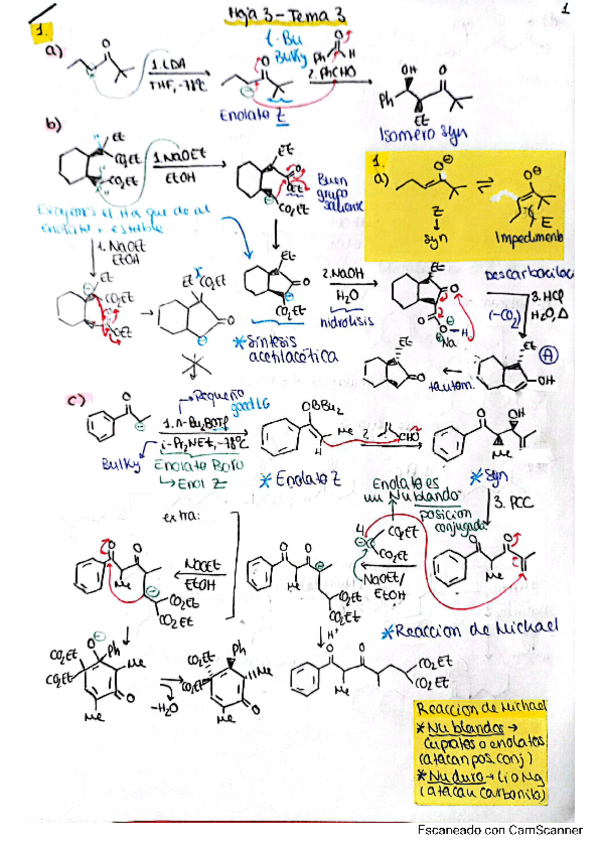 Hoja 3 - Tema 3
1
1.
a)
1. LDA
THF, -78°C
t-Bu
Bulky
Ph
O
2. PhCHO
Enolato Z
OH
O
Ph
Et
Isomero syn
b)
Et
CO2Et
CO2Et
1. NaOEt
EtOH
Et
O
OEt
CO2Et
Buen
grupo
saliente
1.
a)
Z
syn
E
Impedimento
enolato + estable
1. NaOEt
EtOH
Et
CO2Et
Et
CO2Et
O
Et
O
CO2Et
2. NaOH
H2O
hidrólisis
Et
O
Na
H
(-CO2)
3. HCl
H2O, Δ
*Síntesis
acetilacética
Et
O
tautom.
Et
OH
A
c)
Pequeño
good LG
O
1. n-Bu2BOTf
i-Pr2NEt, -78°C
Bulky
Enolato Boro
Enol Z
OBBu2
Me
H
* Enolato Z
2.
CHO
O
OH
Me
* Syn
3. PCC
Enolato es
un Nu blando
posición
conjugada
4
CO2Et
CO2Et
NaOEt/
EtOH
O
O
Me
* Reaccion de Michael
extra:
O
O
Me
CO2Et
CO2Et
NaOEt
EtOH
O
O
Me
CO2Et
CO2Et
H+
CO2Et
CO2Et
O
Ph
Me
O
Me
-H2O
CO2Et
CO2Et
Ph
Me
O
Me
O
O
Me
CO2Et
CO2Et
Reaccion de Michael
* Nu blandos →
Cupratos o enolatos
(atacan pos. conj)
* Nu duro → Li o Mg
(atacan carbonilo)
Escaneado con CamScanner